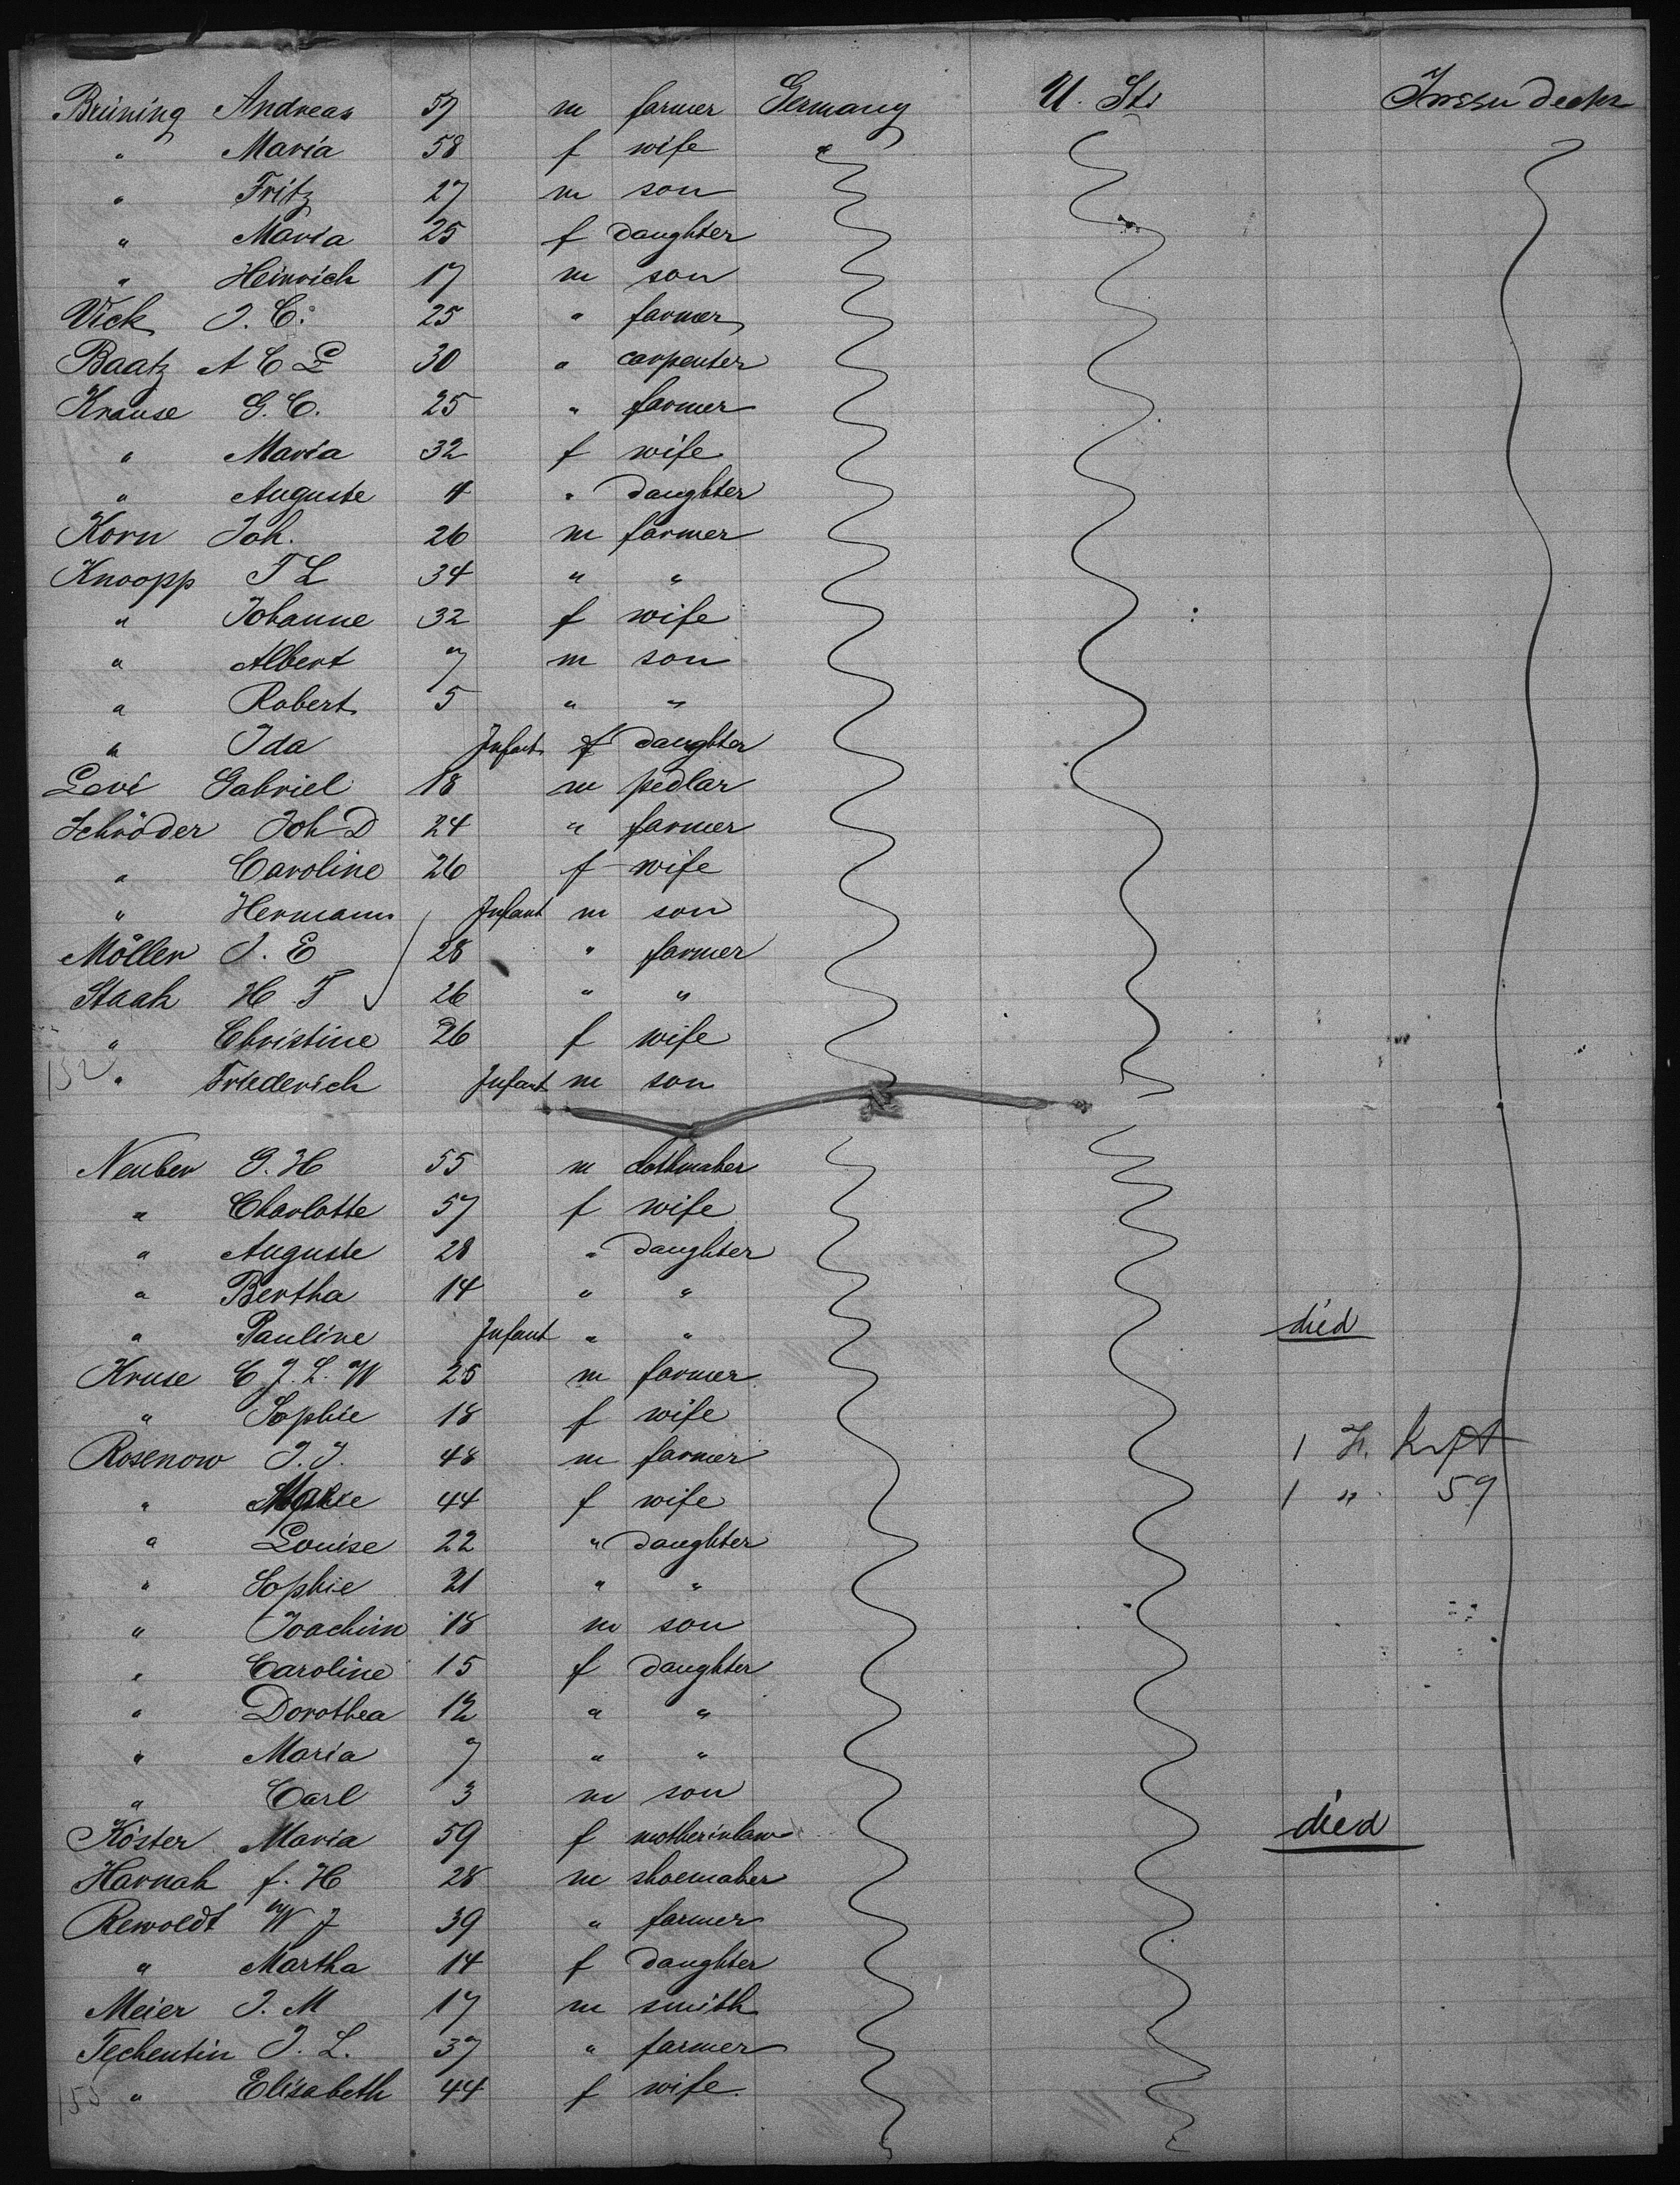 Brüning Andreas 57 m farmer Germany U. Sts
" Maria 58 f wife "
" Fritz 27 m son
" Maria 25 f daughter
" Heinrich 17 m son
Vick J. C. 25 " farmer
Baatz A C 30 " carpenter
Krause G. C. 25 " farmer
" Maria 32 f wife
" Auguste 4 " daughter
Korn Joh. 26 m farmer
Knoopp F L 34 " "
" Johanne 32 f wife
" Albert 7 m son
" Robert 5 " "
" Ida Infant f daughter
Levi Gabriel 18 m pedlar
Schröder Joh D 24 " farmer
" Caroline 26 f wife
" Hermann Infant m son
Möller J. E 28 " farmer
Staak H F 26 " "
" Christine 26 f wife
" Friederich Infant m son
Neuber G. H 55 m clothmaker
" Charlotte 57 f wife
" Auguste 28 " daughter
" Bertha 14 " "
" Pauline Infant " " died
Kruse C J. L. W 25 m farmer
" Sophie 18 f wife
Rosenow J. J. 48 m farmer 1
" Marie 44 f wife 1 " 59
" Louise 22 " daughter
" Sophie 21 " "
" Joachim 18 m son
" Caroline 15 f daughter
" Dorothea 12 " "
" Maria 7 " "
" Carl 3 m son
Köster Maria 59 f motherinlaw died
Harnak f. H 28 m shoemaker
Rewoldt W J 39 " farmer
" Martha 14 f daughter
Meier J. M 17 m smith
Techentin J. L. 37 " farmer
" Elisabeth 44 f wife